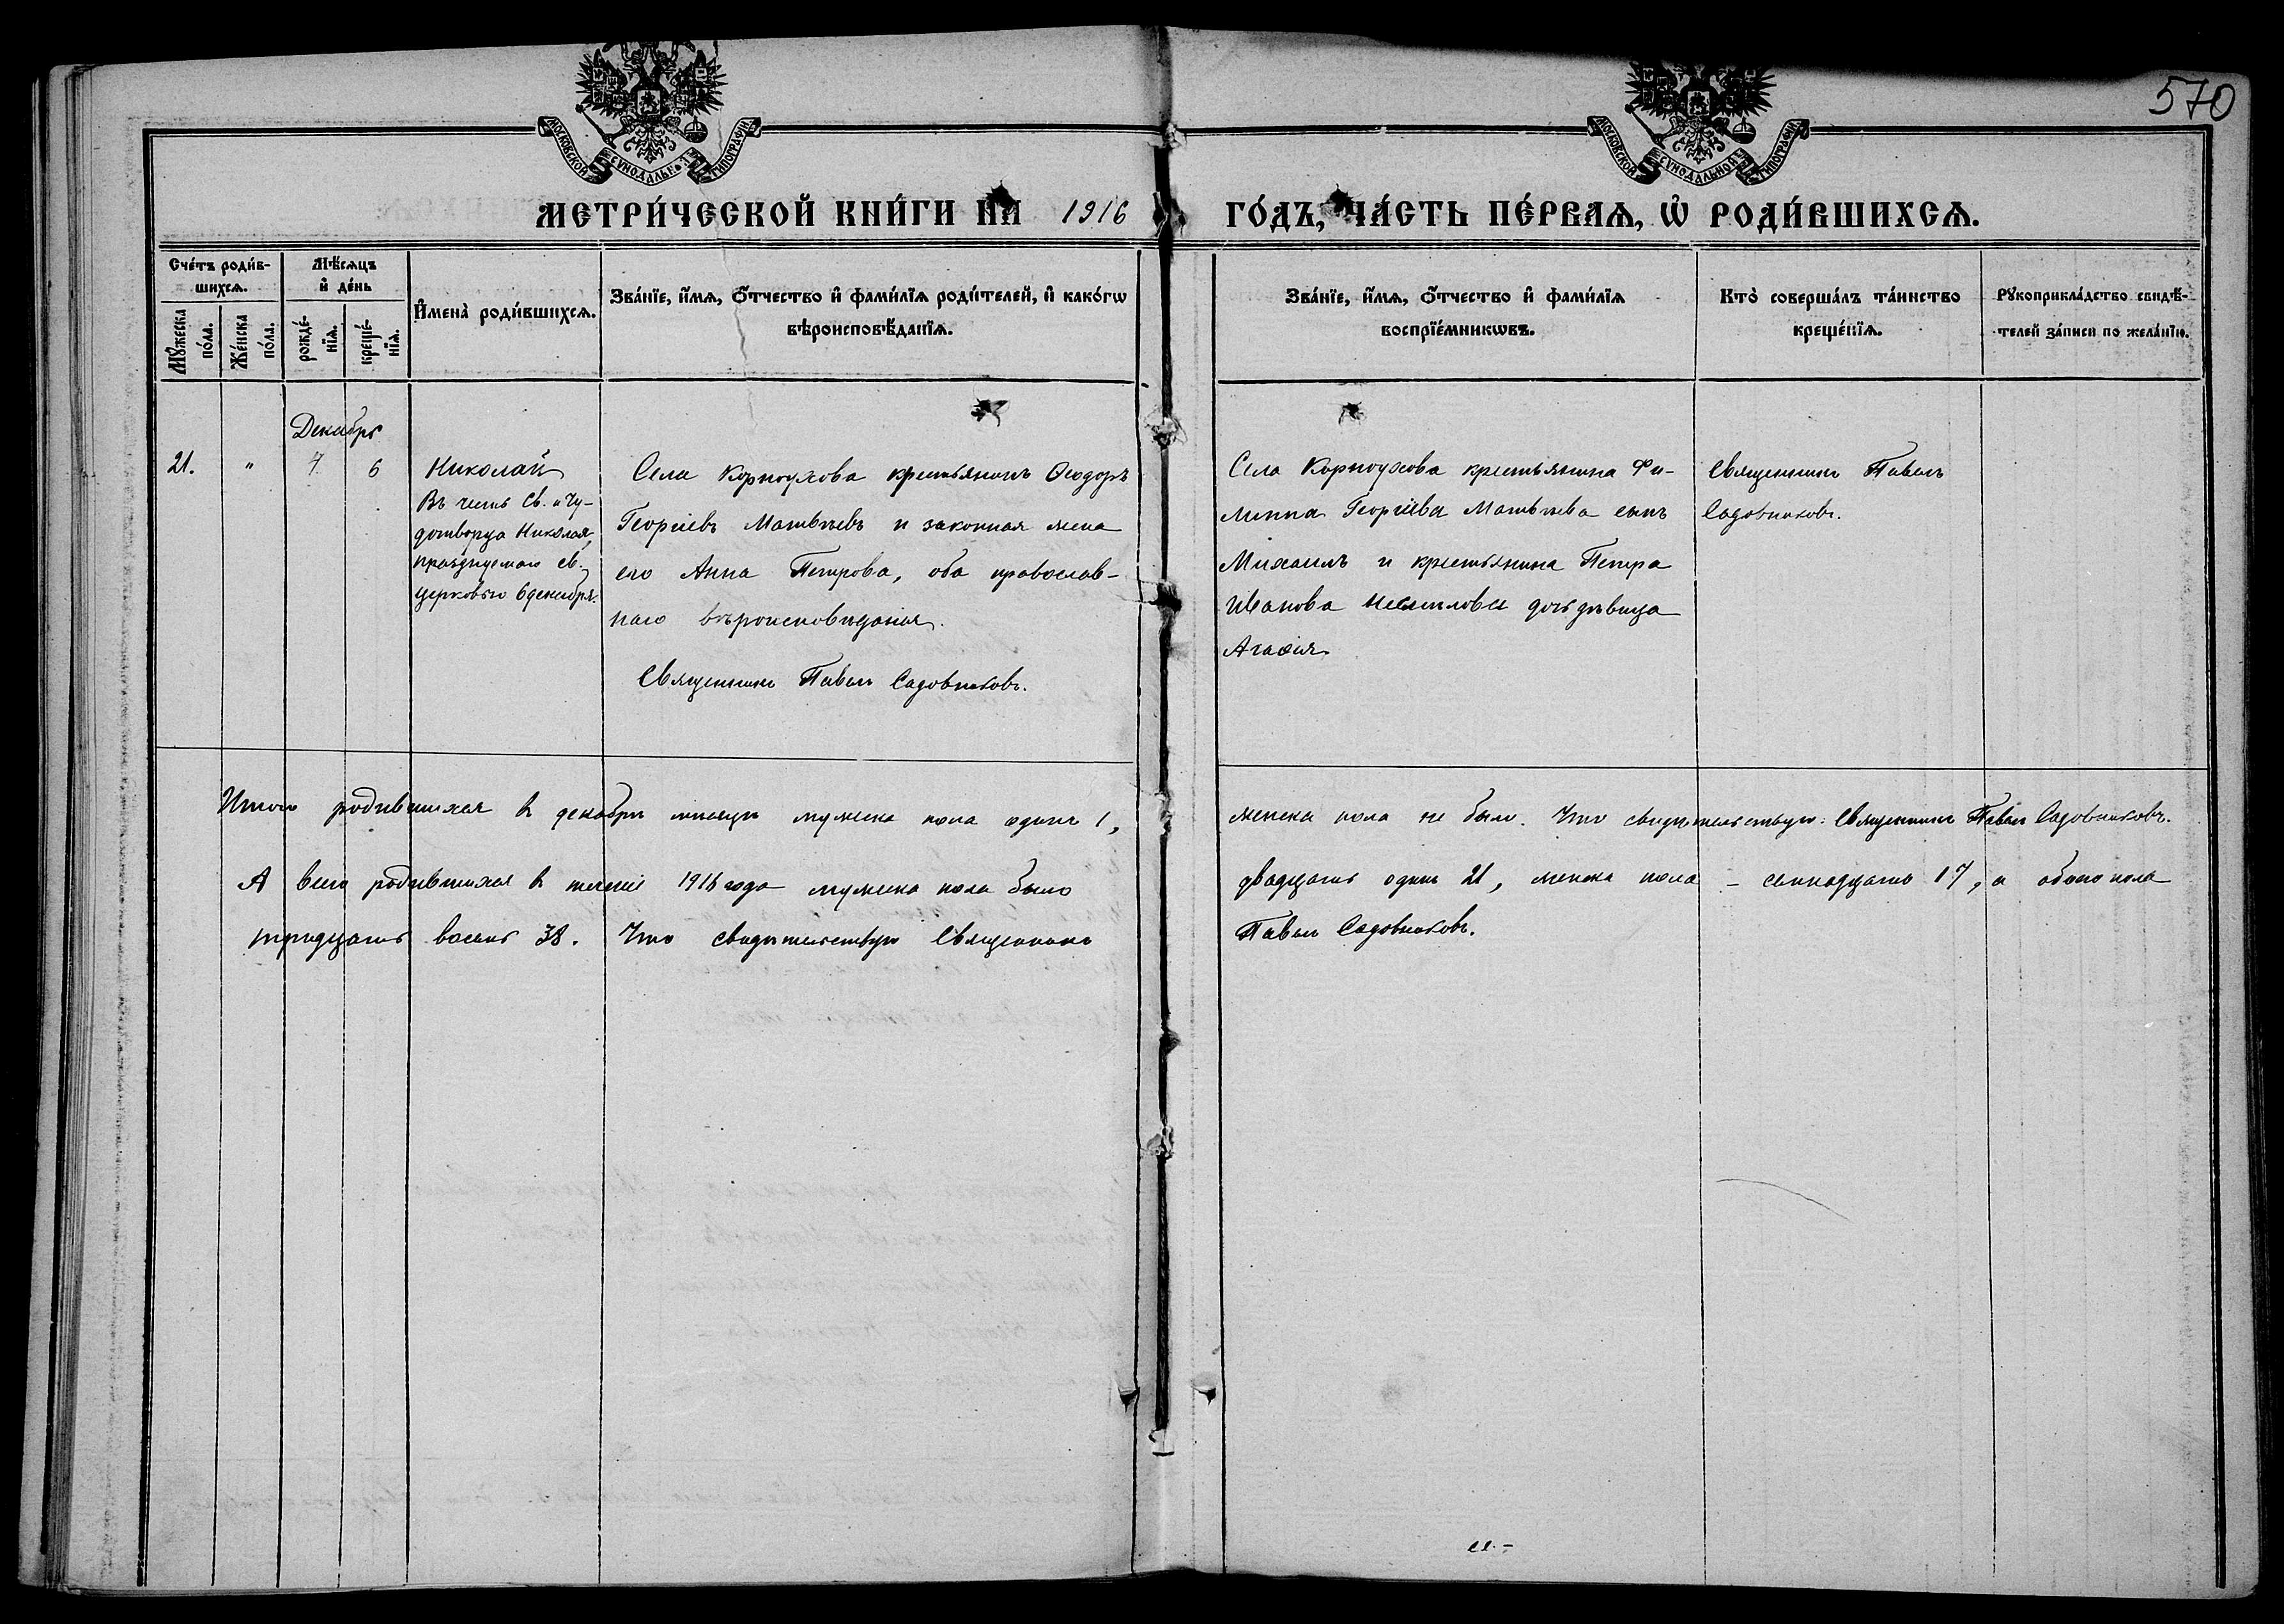 570
МОСКОВСКОЙ СѴНОДАЛЬНОЙ ТИПОГРАФІИ.
МОСКОВСКОЙ СѴНОДАЛЬНОЙ ТИПОГРАФІИ.
МЕТРИ́ЧЕСКОЙ КНИ́ГИ НА 1916 ГО́ДЪ, ЧА́СТЬ ПЕ́РВАѦ, Ѡ҆ РОДИ́ВШИХСѦ.
Сче́тъ роди́в-
шихсѧ.
Мꙋ́жеска по́ла.
Же́нска по́ла.
Мѣ́сѧцъ
и҆ де́нь
рожде́-
нїѧ.
креще́-
нїѧ.
И҆мена̀ роди́вшихсѧ.
Зва́нїе, и҆́мѧ, ѻ҆́тчество и҆ фами́лїѧ роди́телей, и҆ како́гѡ
вѣроисповѣ́данїѧ.
Зва́нїе, и҆́мѧ, ѻ҆́тчество и҆ фами́лїѧ
воспрїе́мникѡвъ.
Кто̀ соверша́лъ та́инство
креще́нїѧ.
Рꙋкоприкла́дство свидѣ́-
телей за́писи по жела́нїю.
Декабрь
21. " 4 6
Николай
Въ честь Св. и Чу-
дотворца Николая,
празднуемаго св.
церковью 6 декабря.
Села Корноухова крестьянинъ Ѳеодоръ
Георгіевъ Матвѣевъ и законная жена
его Анна Петрова, оба православ-
наго вѣроисповѣданія.
Священникъ Павелъ Садовниковъ.
Села Корноухова крестьянина Фи-
липпа Георгіева Матвѣева сынъ
Михаилъ и крестьянина Петра
Иванова дочь дѣвица
Агаѳія.
Священникъ Павелъ
Садовниковъ.
Итого родившихся въ декабрѣ мѣсяцѣ мужеска пола одинъ 1, женска пола не было. Что свидѣтельствую: Священникъ Павелъ Садовниковъ.
А всего родившихся въ теченіе 1916 года мужеска пола было двадцать одинъ 21, женска пола – семнадцать 17, а обоего пола
тридцать восемь 38. Что свидѣтельствую Священникъ Павелъ Садовниковъ.